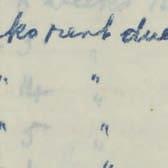 ko rent due
" "
" "
"